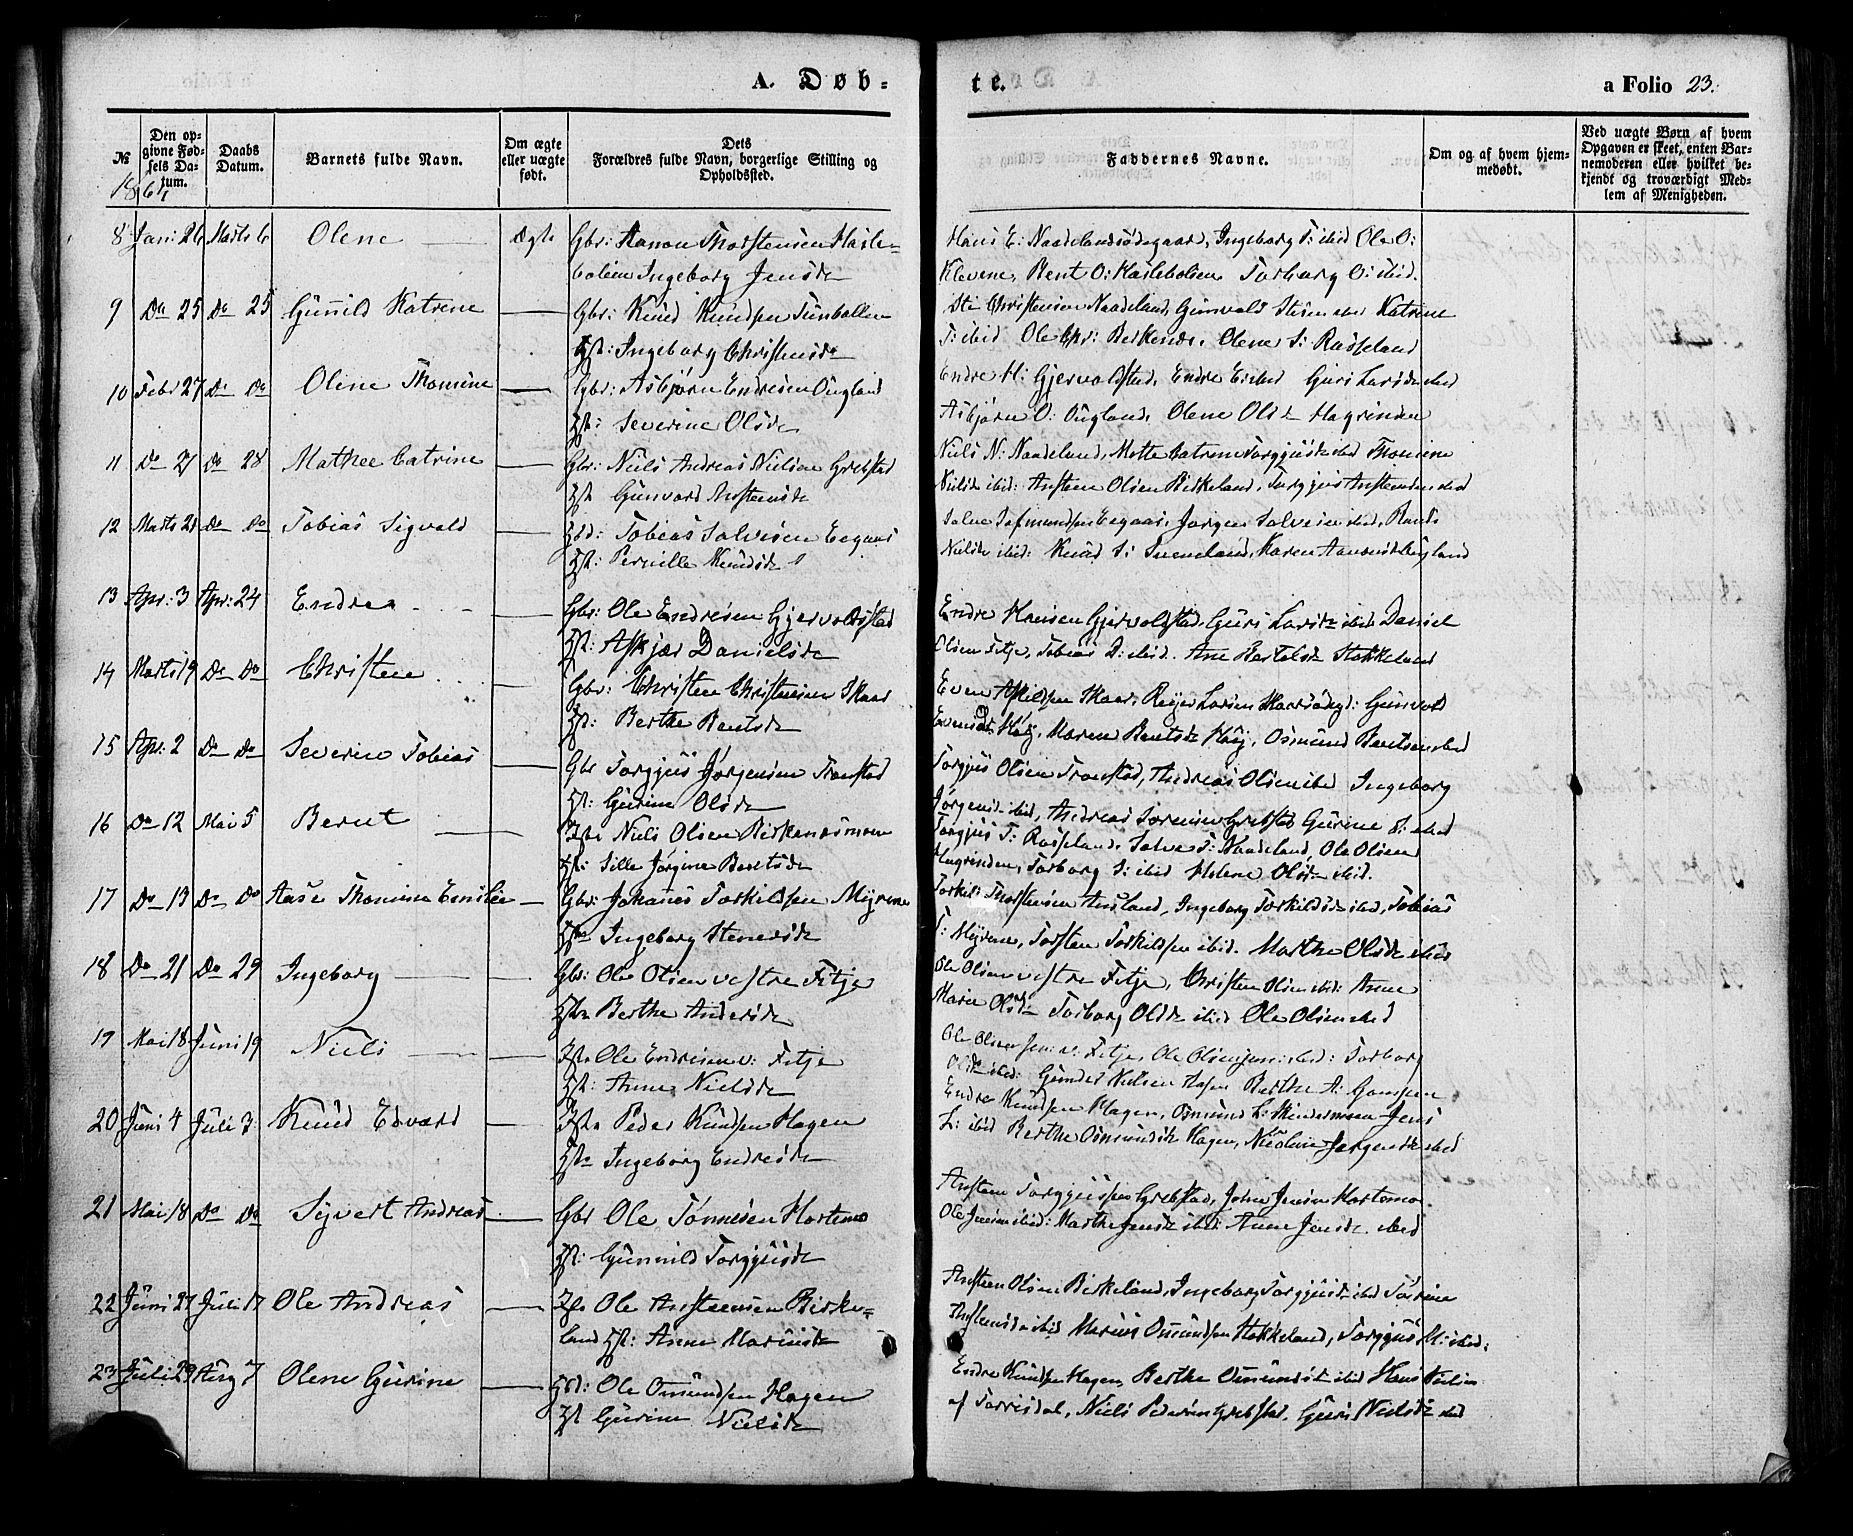 A. Døb-
te.
a Folio 23.
№
Den op-
givne Fød-
sels Da-
tum.
Daabs
Datum.
Barnets fulde Navn.
Om ægte
eller uægte
født.
Dets
Forældres fulde Navn, borgerlige Stilling og
Opholdssted.
Faddernes Navne.
Om og af hvem hjem-
medøbt.
Ved uægte Børn af hvem
Opgaven er skeet, enten Bar-
nemoderen eller hvilket be-
kjendt og troværdigt Med-
lem af Menigheden.
1864
8 Jan: 26 Marts 6 Olene Ægte Gbr: Aanon Thorstensen Hasle-
bolien Ingeborg Jensdr
Hans E: Naadelandsødegaard, Ingeborg T: ibid Ole O:
Klevene, Bent O: Haslebolien Torborg O: ibid.
9 Do 25 Do 25 Gunild Katrine Gbr: Knud Knudsen
Hst: Ingeborg Christensdr
Christensen Naadeland, Gunvald Katrine
T: ibid Ole Chr: Birkenes. Olene T: Rosseland
10 Febr 27 Do Do Olene Thomine Gbr: Asbjørn Endresen Ougland
Hst: Severine Olsdr
Endre H: Gjervoldstad, Endre E: ibid Guri Larsdr ibid
Asbjørn O: Ougland, Olene Olsdr Hagrinden
11 Do 21 Do 28 Mathee Catrine Gbr: Niels Andreas Nielsen Grebstad
Hst Gunvord Anstensdr
Niels N: Naadeland, Mette Catrine Torgjusdr ibid Thomine
Nielsdr ibid: Ansten Olsen Birkeland, Torgjus Anstensen ibid
12 Marts 21 Do Do Tobias Sigvald Tobias Salvesen Eegaas
Hst: Pernille Knudsdr
Salve Eegaas, Jørgen Salvesen ibid,
Nielsdr ibid: Knud T: Sveneland, Karen
13 Apr: 3 Apr: 24 Endre Gbr: Ole Endresen Gjervoldstad
Hst: Askjær Danielsdr
Endre Hansen Gjervoldstad, Guri Larsdr ibid Daniel
Olsen Fitje, Tobias D: ibid. Ane Bertelsdr Stokkeland
14 Marts 19 Do Do Christen Gbr: Christen Christensen Skaar
Hst: Berthe Bentsdr
Even Skaar, Reyer Larsen Gunvold
Evensdr Høij, Maren Bentsdr Høij, Osmund Bentsen ibid
15 Apr: 2 Do Do Severin Tobias Gbr Torgjus Jørgensen Tronstad
Hst: Gurine Olsdr
Torgjus Olsen Tronstad, Andreas Olsen ibid Ingeborg
Jørgensdr ibid, Andreas Sørensen Grebstad Gurine O: ibid
16 Do 12 Mai 5 Bernt Niels Olsen Birkenesmoen
Hst: Sille Jørgine Bentsdr
Torgjus T: Rosseland, Salve T: Naadeland, Ole Olsen
Hagrinden, Torborg T: ibid Helene Olsdr ibid.
17 Do 13 Do Do Aase Thomine Emilie Gbr: Johanes Torkildsen Myrene
Ingeborg Stenersdr
Torkil Thorstensen Aasland, Ingeborg Torkildsdr ibid, Tobias
T: Myrene, Torsten Torkildsen ibid. Marthe Olsdr ibid
18 Do 21 Do 29 Ingeborg Gbr: Ole Olsen vestre Fitje
Berthe Andersdr
Ole Olsen vestre Fitje, Christen Olsen ibid: Anne
Marie Olsdr Torborg Olsdr ibid Ole Olsen ibid
19 Mai 18 Juni 19 Niels Ole Endresen v: Fitje
Hst: Anne Nielsdr
Ole Olsen sen: v: Fitje, Ole Olsen jun: ibid: Torborg
Olsdr ibid: Gunder Nielsen Berthe A:
20 Juni 4 Juli 3 Knud Edvard Peder Knudsen Hagen
Ingeborg Endresdr
Endre Knudsen Hagen, Osmund L: Jens
L: ibid Berthe Osmundsdr Hagen, Nicoline Jørgensdr ibid
21 Mai 18 Do Do Syvert Andreas Gbr Ole Tønnesen Hortemo
Hst: Gunnild Torgjusdr
Ansten Torgjussen Grebstad, John Jensen Hortemo
Ole Jensen ibid: Marthe Jensdr ibid Anne Jensdr ibid
22 Juni 27 Juli 17 Ole Andreas Ole Anstensen Birke-
land Hst: Anne
Ansten Olsen Birkeland, Ingeborg Torgjusdr ibid
Anstensdr ibid Marius Osmundsen Stokkeland, Torgjus M: ibid:
23 Juli 29 Aug 7 Olene Gurine Ole Osmundsen Hagen
Hst Gurine Nielsdr
Endre Knudsen Hagen, Berthe Osmundsdr ibid Hans
af Torrisdal, Niels Pedersen Grebstad. Guri Nielsdr ibid